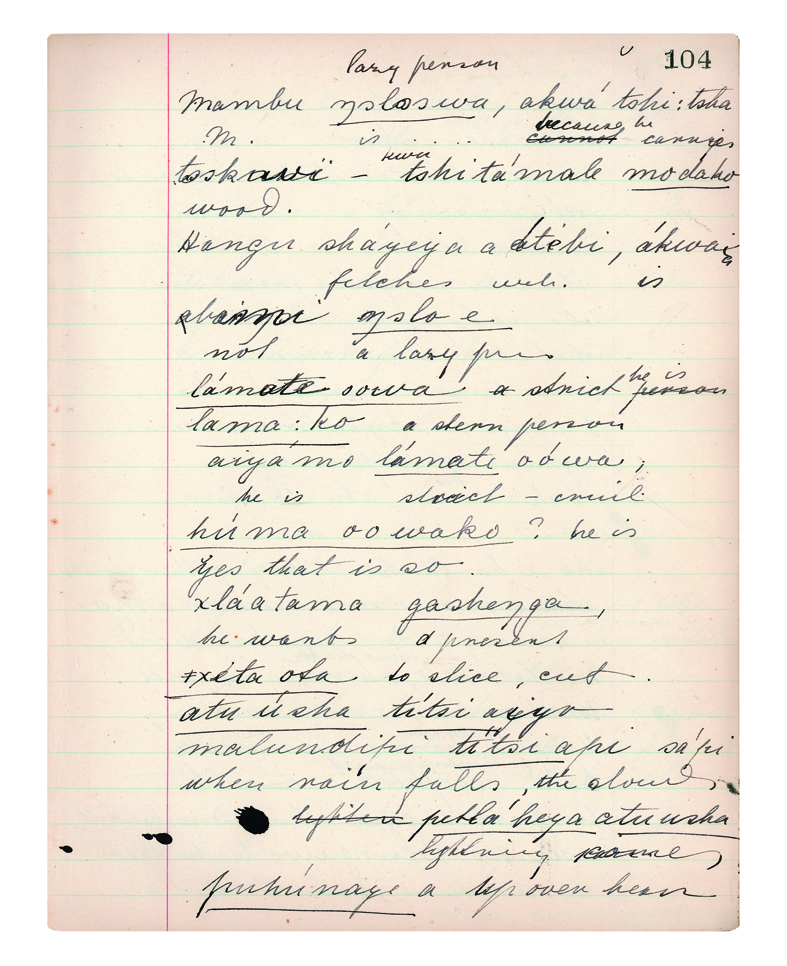 104
lazy person
Mambu ŋsloswa, akwá tshi:tsha
M. is .... because he cannot carries
tsskawi – tshitámale modako
wood.
Hangu sháyeiya a átébi, ákwai
fetches wah. is
ŋslo e
not a lazy per
lámate oowa a strict he is person
lama:ko a stern person
aiyámo lámate oówa,
he is strict – cruil
húma oowako ? he is
Yes that is so.
xláatama gashenga,
he wants a present
ǂxéta ota to slice, cut.
atu úsha títsi
malundipi títsi api sápi
when rain falls, the
petláheya atuusha
lightning
puhúnage a